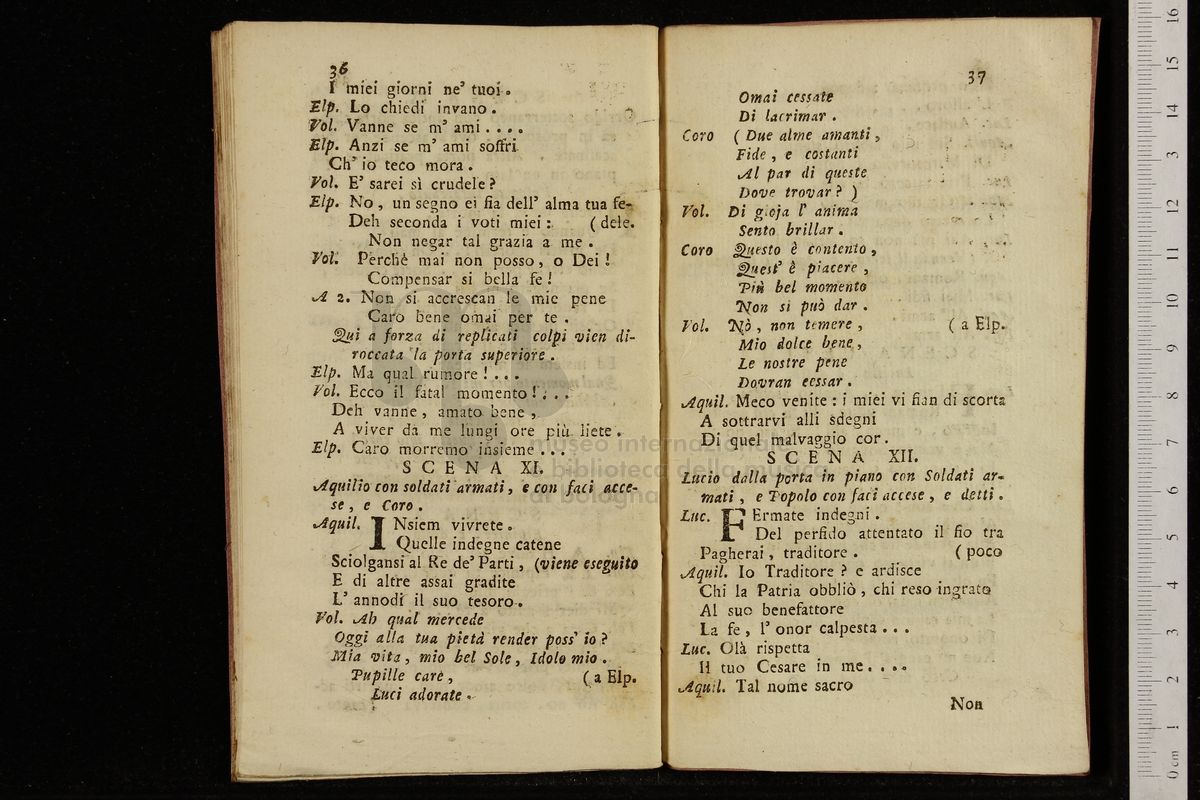 36
I miei giorni ne' tuoi.
Elp. Lo chiedi invano.
Vol. Vanne se m' ami....
Elp. Anzi se m' ami soffri
Ch' io teco mora.
Vol. E' sarei sì crudele?
Elp. No, un segno ei fia dell' alma tua fe-
Deh seconda i voti miei: (dele.
Non negar tal grazia a me.
Vol. Perchè mai non posso, o Dei!
Compensar si bella fe!
A 2. Non si accrescan le mie pene
Caro bene omai per te.
Qui a forza di replicati colpi vien di-
roccata la porta superiore.
Elp. Ma qual rumore!...
Vol. Ecco il fatal momento!...
Deh vanne, amato bene,
A viver da me lungi ore più liete.
Elp. Caro morremo insieme...
SCENA XI.
Aquilio con soldati armati, e con faci acce-
se, e Coro.
Aquil. INsiem vivrete.
Quelle indegne catene
Sciolgansi al Re de' Parti, (viene eseguito
E di altre assai gradite
L' annodi il suo tesoro.
Vol. Ah qual mercede
Oggi alla tua pietà render poss' io?
Mia vita, mio bel Sole, Idolo mio.
Pupille care, (a Elp.
Luci adorate.
37
Omai cessate
Di lacrimar.
Coro (Due alme amanti,
Fide, e costanti
Al par di queste
Dove trovar?)
Vol. Di gioja l' anima
Sento brillar.
Coro Questo è contento,
Quest' è piacere,
Più bel momento
Non si può dar.
Vol. Nò, non temere, (a Elp.
Mio dolce bene,
Le nostre pene
Dovran cessar.
Aquil. Meco venite: i miei vi fian di scorta
A sottrarvi alli sdegni
Di quel malvaggio cor.
SCENA XII.
Lucio dalla porta in piano con Soldati ar-
mati, e Popolo con faci accese, e detti.
Luc. FErmate indegni.
Del perfido attentato il fio tra
Pagherai, traditore. (poco
Aquil. Io Traditore? e ardisce
Chi la Patria obbliò, chi reso ingrato
Al suo benefattore
La fe, l' onor calpesta...
Luc. Olà rispetta
Il tuo Cesare in me....
Aquil. Tal nome sacro
Non
museo internazionale
biblioteca della musica
di bologna
0 cm 1 2 3 4 5 6 7 8 9 10 11 12 13 14 15 16